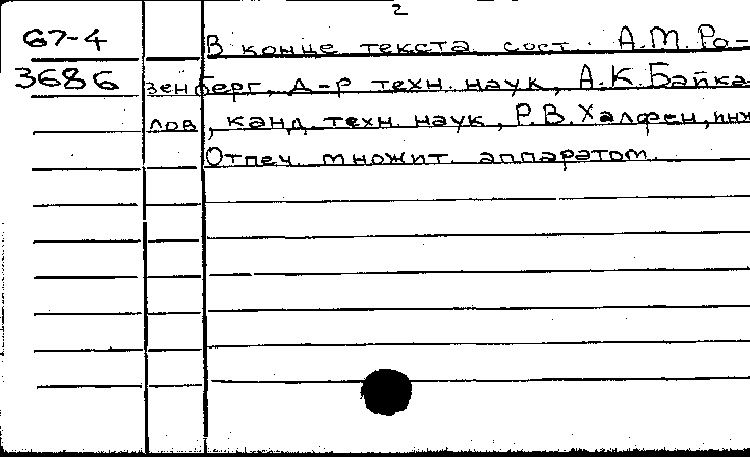 2
67-4 В конце текста сост. А.М. Ро-
3686 зенберг, д-р техн. наук, А.К. Байка
лов, канд. техн. наук, Р.В. Халфен, инж
Отпеч. множит. аппаратом.